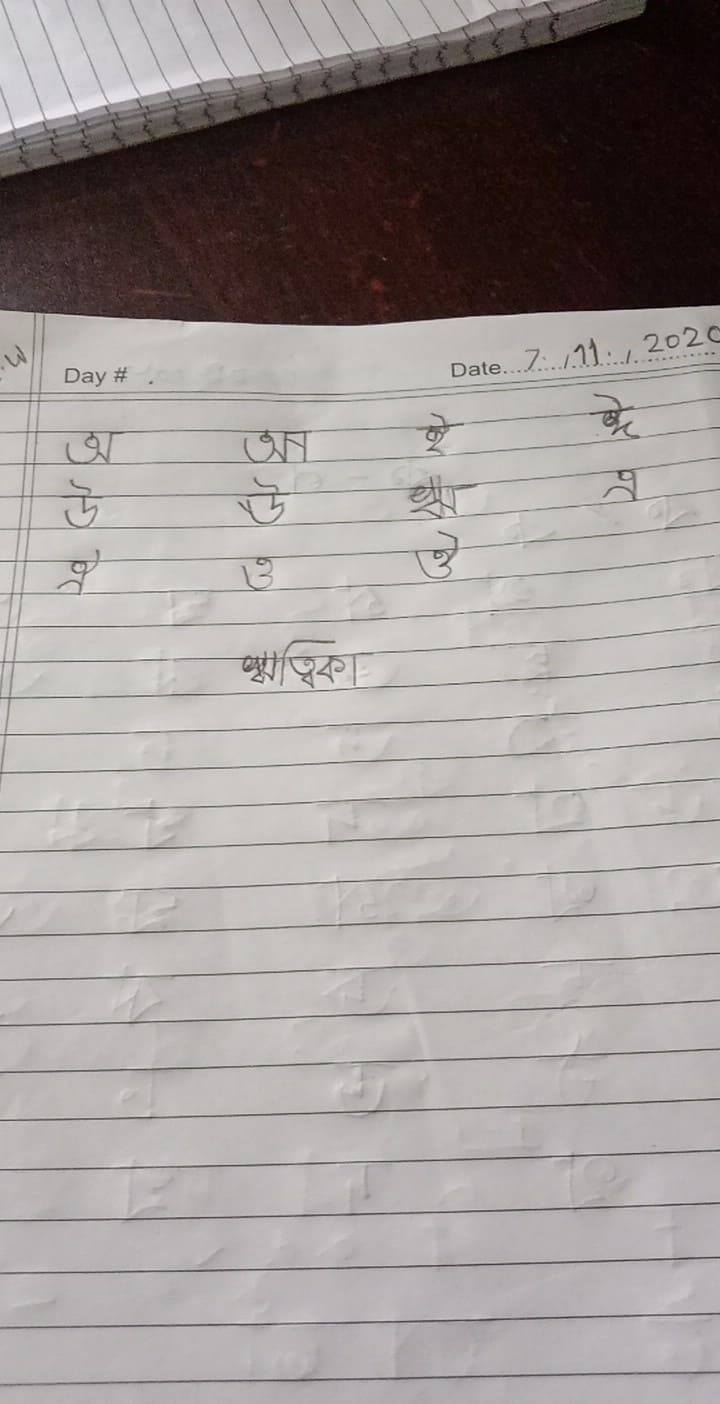 Day # .
Date...7...11...2020
অ আ ই ঈ
উ ঊ ঋ এ
ঐ ও ঔ
ঋত্বিকা